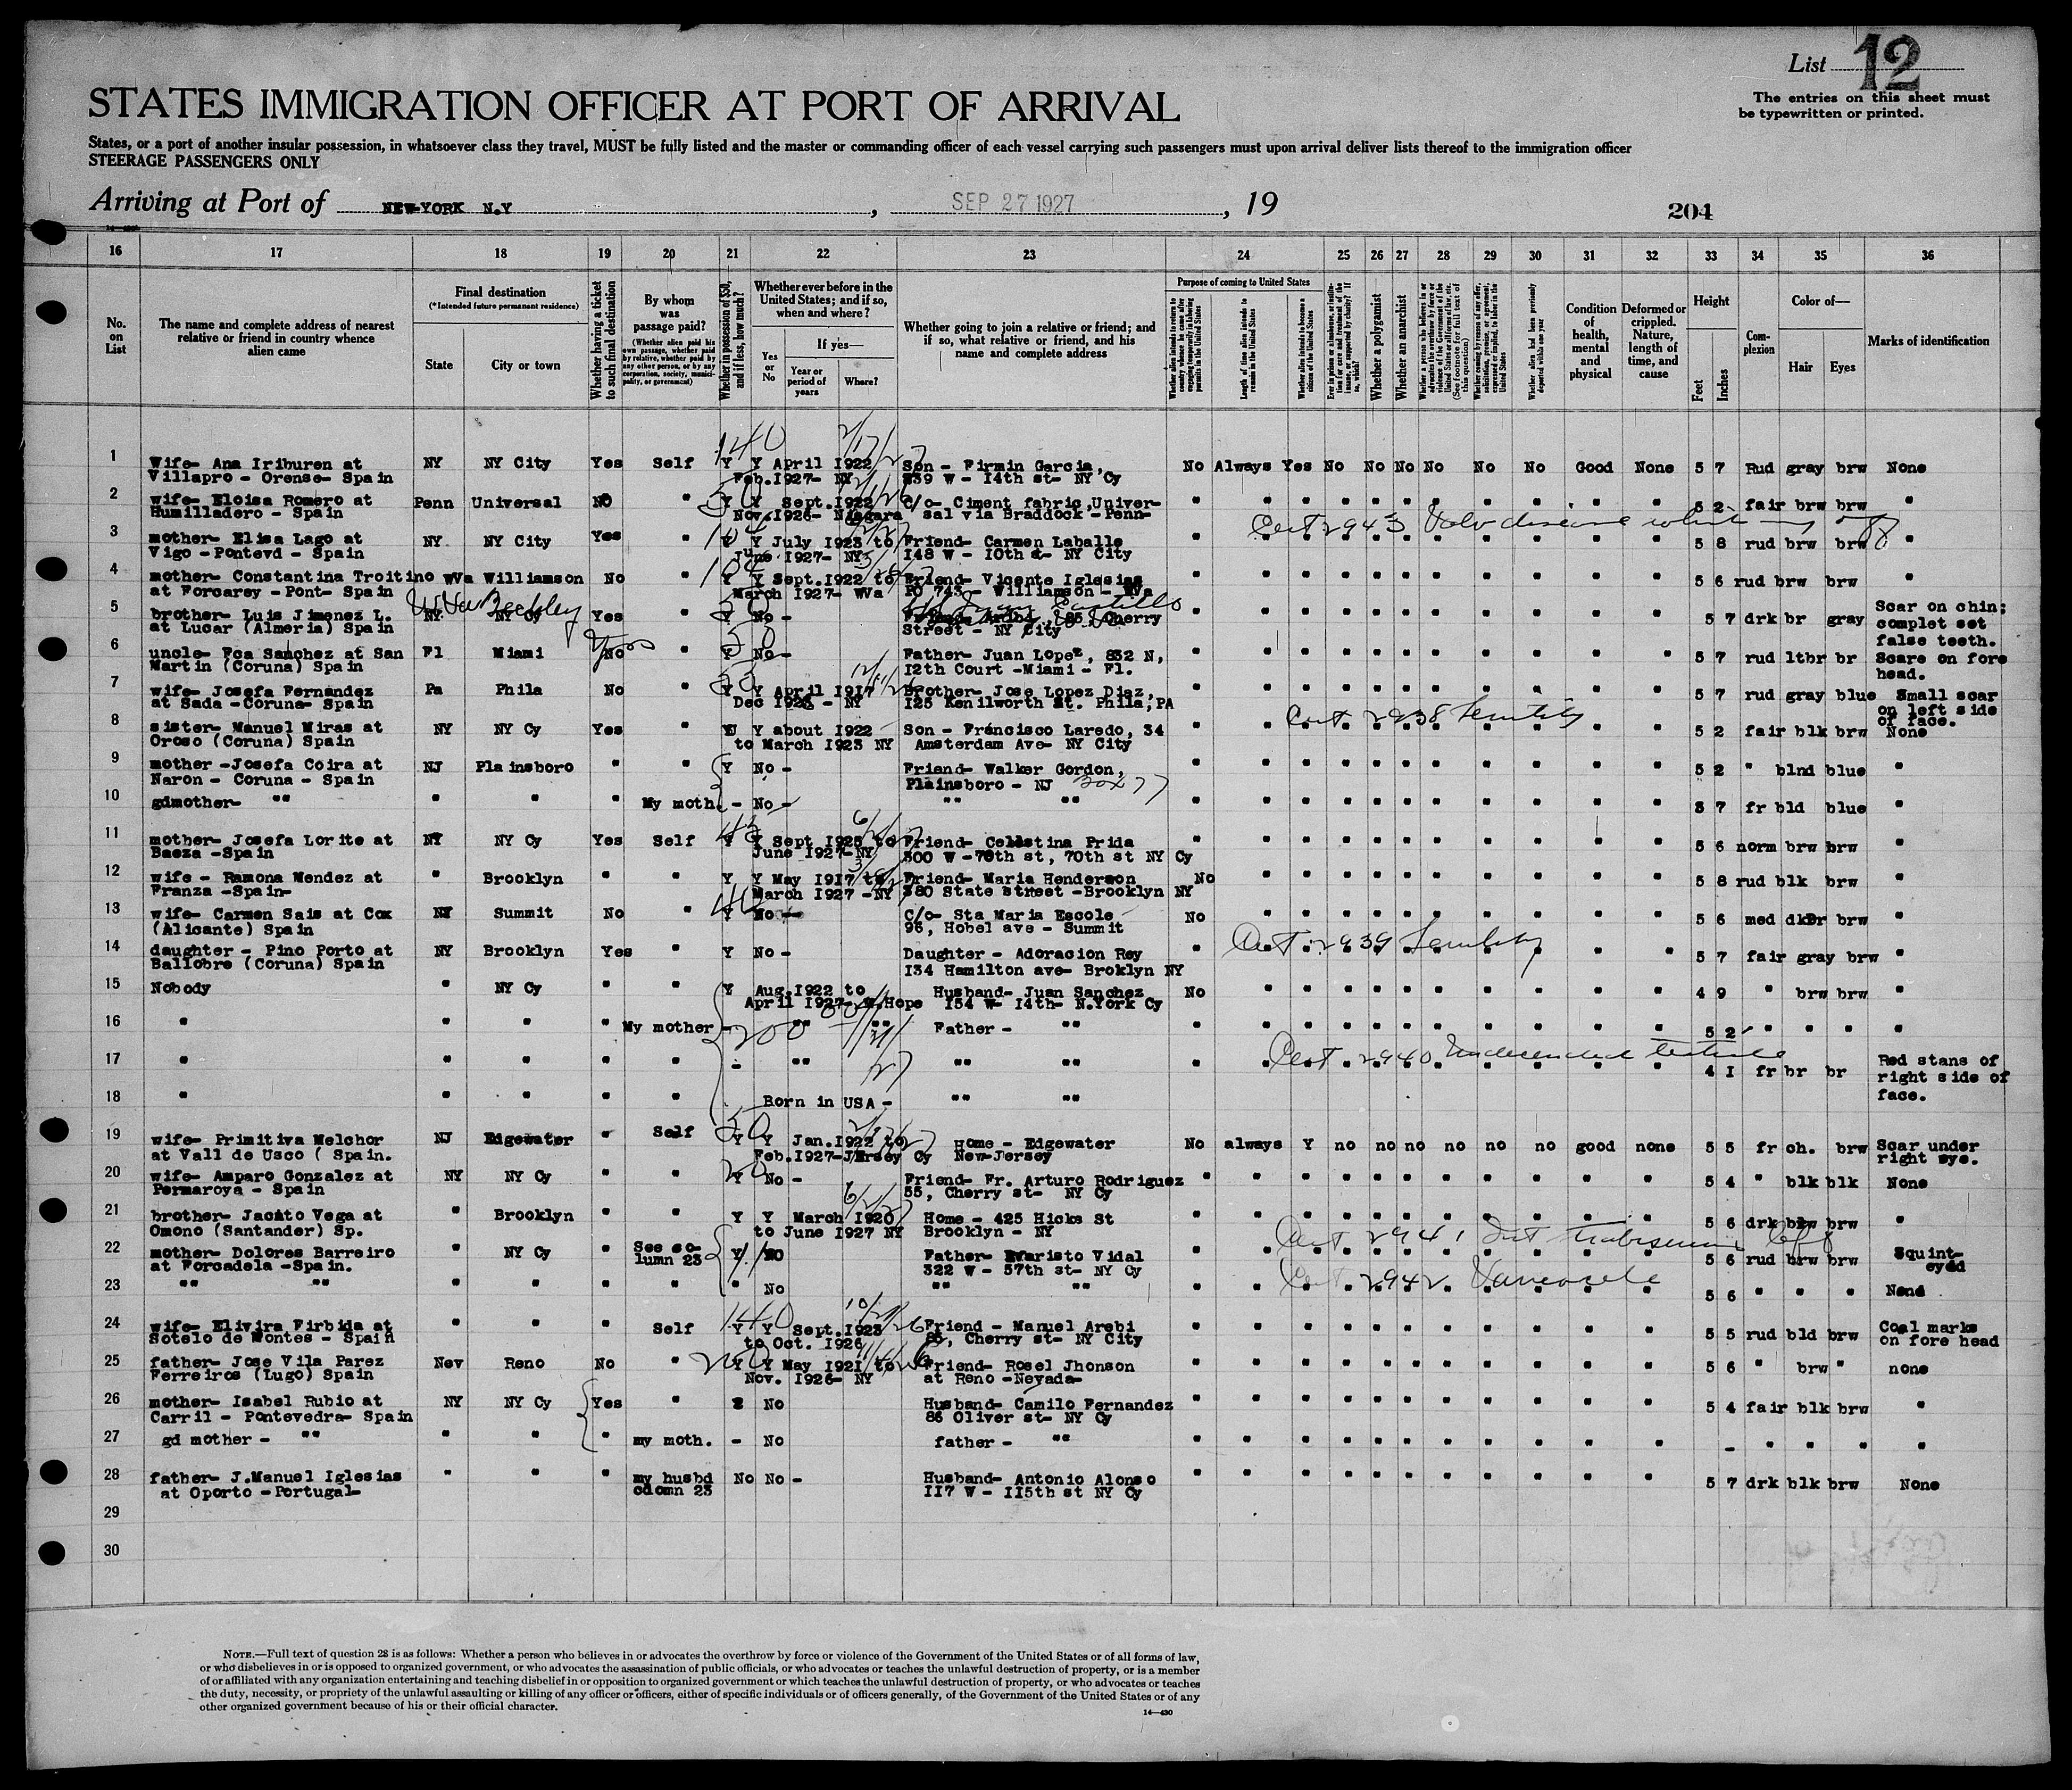 List 12
The entries on this sheet must
be typewritten or printed.
STATES IMMIGRATION OFFICER AT PORT OF ARRIVAL
States, or a port of another insular possession, in whatsoever class they travel, MUST be fully listed and the master or commanding officer of each vessel carrying such passengers must upon arrival deliver lists thereof to the immigration officer
STEERAGE PASSENGERS ONLY
Arriving at Port of NEW-YORK N.Y , SEP 27 1927 , 19
204
16 17 18 19 20 21 22 23 24 25 26 27 28 29 30 31 32 33 34 35 36
No. on List
The name and complete address of nearest relative or friend in country whence alien came
Final destination
(*Intended future permanent residence)
State
City or town
Whether having a ticket to such final destination
By whom was passage paid?
(Whether alien paid his own passage, whether paid by relative, whether paid by any other person, or by any corporation, society, municipality, or government)
Whether in possession of $50, and if less, how much?
Whether ever before in the United States; and if so, when and where?
Yes or No
If yes—
Year or period of years
Where?
Whether going to join a relative or friend; and if so, what relative or friend, and his name and complete address
Purpose of coming to United States
Length of time alien intends to remain in the United States
Whether alien intends to become a citizen of the United States
Whether a polygamist
Whether an anarchist
Whether alien had been previously deported within one year
Condition of health, mental and physical
Deformed or crippled. Nature, length of time, and cause
Height
Feet
Inches
Complexion
Color of—
Hair
Eyes
Marks of identification
1 Wife- Ana Iriburen at NY NY City Yes Self Y Y April 1922 Son - Firmin Garcia, No Always Yes No No No No No No Good None 5 7 Rud gray brw None
Villapro - Orense- Spain Feb.1927- NY 239 W - 14th st- NY Cy
2 wife- Eloisa Romero at Penn Universal NO " Y Y Sept.1922 C/o- Ciment fabric,Univer- 5 2 fair brw brw "
Humilladero - Spain Nov.1926- Niagara sal via Braddock - Penn-
Cert 2943
3 mother- Elisa Lago at NY NY City Yes " Y Y July 1923 to Friend- Carmen Laballe 5 8 rud brw brw "
Vigo - Pontevd - Spain June 1927- NY 148 W - 10th st- NY City
4 mother- Constantina Troitino WVa Williamson No " Y Y Sept.1922 to Friend- Vicente Iglesias 5 6 rud brw brw "
at Forcarey - Pont- Spain March 1927- WVa PO 743 - Williamson - WVa
W Va Beckley
5 brother- Luis Jimenez L. NY NY Cy Yes " Y No - Cherry 5 7 drk br gray Scar on chin;
at Lucar (Almeria) Spain Street - NY City complet set
false teeth.
6 uncle- Fca Sanchez at San Fl Miami No " Y No- Father- Juan Lopez, 832 N, 5 7 rud ltbr br Scare on fore
Martin (Coruna) Spain 12th Court -Miami - Fl. head.
7 wife- Josefa Fernandez Pa Phila No " Y Y April 1917 Brother- Jose Lopez Diaz, 5 7 rud gray blue Small scar
at Sada -Coruna- Spain - NY 125 Kenilworth St. Phila,PA on left side
of face.
Cert 2938 Senility
8 sister- Manuel Miras at NY NY Cy Yes Y about 1922 Son - Francisco Laredo, 34 5 2 fair blk brw None
Oroso (Coruna) Spain to March 1923 NY Amsterdam Ave- NY City
9 mother -Josefa Coira at NJ Plainsboro " " Y No - Friend- Walker Gordon, 5 2 " blnd blue "
Naron - Coruna - Spain Plainsboro - NJ Box 77
10 gdmother- "" " " " My moth. - No - "" "" 3 7 fr bld blue "
11 mother- Josefa Lorite at NY NY Cy Yes Self Y Y Sept 1925 to Friend- Celestina Prida 5 6 norm brw brw "
Baeza -Spain June 1927-NY 300 W -70th st, 70th st NY Cy
12 wife - Ramona Mendez at " Brooklyn " " Y Y May 1917 to Friend- Maria Henderson No 5 8 rud blk brw "
Franza -Spain- March 1927 -NY 380 State street -Brooklyn NY
13 wife- Carmen Sais at Cox NJ Summit No " Y No C/o- Sta Maria Escole No 5 6 med dkBr brw "
(Alicante) Spain 96, Hobel ave - Summit
Cert 2939 Senility
14 daughter - Pino Porto at NY Brooklyn Yes " Y No - Daughter - Adoracion Rey 5 7 fair gray brw "
Ballobre (Coruna) Spain 134 Hamilton ave- Broklyn NY
15 Nobody " NY Cy " " Y Aug.1922 to Husband- Juan Sanchez No 4 9 " brw brw "
April 1927- 154 W- 14th- N.York Cy
16 " " " " My mother - "" "" Father - "" 5 2 " " " "
200
Cert 2940
17 " " " " " - "" "" "" 4 1 fr br br Red stans of
right side of
face.
18 " " " " " Born in USA - "" ""
19 wife- Primitiva Melchor NJ Edgewater " Self Y Y Jan.1922 to Home - Edgewater No always Y no no no no no no good none 5 5 fr ch. brw Scar under
at Vall de Usco ( Spain. Feb.1927-Jersey Cy New-Jersey right eye.
20 wife- Amparo Gonzalez at NY NY Cy " " Y No - Friend- Fr. Arturo Rodriguez 5 4 " blk blk None
Permaroya - Spain 55, Cherry st- NY Cy
21 brother- Jacito Vega at " Brooklyn " " Y Y March 1920 Home - 425 Hicks St 5 6 drk brw brw "
Omono (Santander) Sp. to June 1927 NY Brooklyn - NY
Cert 2941
22 mother- Dolores Barreiro " NY Cy " See co- Y NO Father- Evaristo Vidal 5 6 rud brw brw Squint-
at Forcadela -Spain. lumn 23 322 W - 57th st- NY Cy eyed
Cert 2942 Varicocele
23 "" "" " " " " " No "" "" 5 6 " " "
24 wife- Elivira Firbida at " " " Self Y Y Sept.1923 Friend - Manuel Arebi 5 5 rud bld brw Coal marks
Sotelo de Montes - Spain to Oct. 1926 86, Cherry st- NY City on fore head
25 father- Jose Vila Parez Nev Reno No " Y Y May 1921 to Friend- Rosel Jhonson 5 6 " brw " none
Ferreiros (Lugo) Spain Nov. 1926- NY at Reno -Nevada-
26 mother- Isabel Rubio at NY NY Cy Yes " No Husband- Camilo Fernandez 5 4 fair blk brw "
Carril - Pontevedra- Spain 86 Oliver st- NY Cy
27 gd mother - "" " " " my moth. - No father - "" - " " " "
28 father- J.Manuel Iglesias " " " my husbd No No - Husband- Antonio Alonso 5 7 drk blk brw None
at Oporto -Portugal- colomn 23 117 W - 115th st NY Cy
29
30
NOTE.—Full text of question 28 is as follows: Whether a person who believes in or advocates the overthrow by force or violence of the Government of the United States or of all forms of law,
or who disbelieves in or is opposed to organized government, or who advocates the assassination of public officials, or who advocates or teaches the unlawful destruction of property, or is a member
of or affiliated with any organization entertaining and teaching disbelief in or opposition to organized government or which teaches the unlawful destruction of property, or who advocates or teaches
the duty, necessity, or propriety of the unlawful assaulting or killing of any officer or officers, either of specific individuals or of officers generally, of the Government of the United States or of any
other organized government because of his or their official character.
14—430